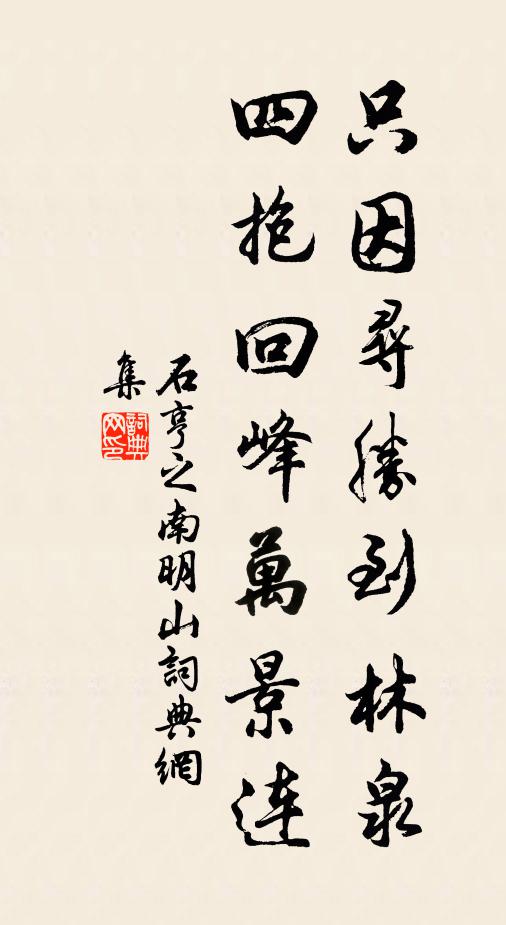 只因尋勝到林泉
四抱回峰萬景連
石亨之南明山詞典網
集
詞典
网印